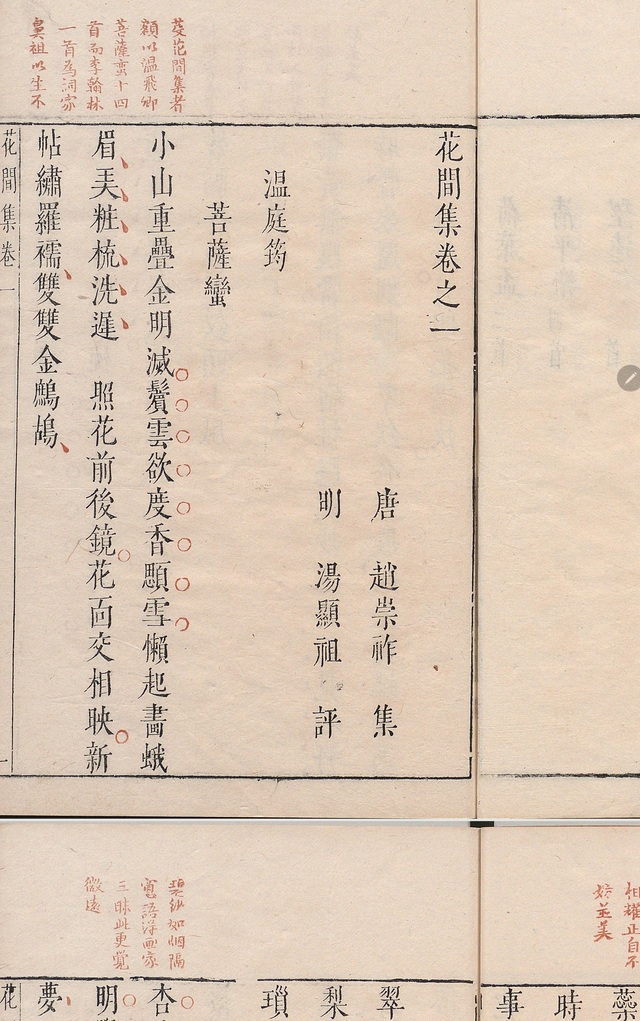 花間集卷之一
唐 趙崇祚 集
明 湯顯祖 評
溫庭筠
菩薩蠻
小山重疊金明滅鬢雲欲度香顋雪懶起畵蛾
眉美粧梳洗遲 照花前後鏡花靣交相映新
帖繡羅襦雙雙金鷓鴣
花間集卷一
芟花間集者
額以溫飛卿
菩薩蠻十四
首而李翰林
一首為詞家
鼻祖以生不
蘂
時
事
翠
梨
瑣
杏
明
夢
花
正自不
妨並美
碧紗如烟隔
窗語得画家
三昧此更覺
微遠